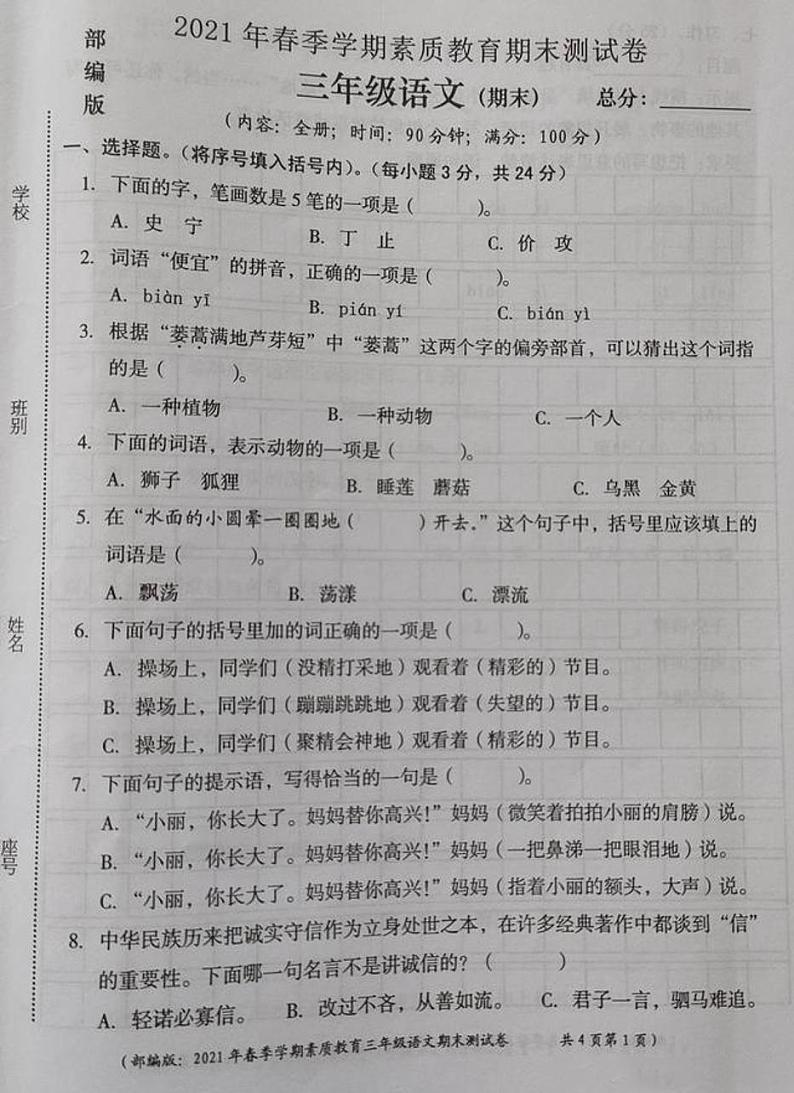 部编版
2021年春季学期素质教育期末测试卷
三年级语文（期末） 总分：
（内容：全册；时间：90分钟；满分：100分）
一、选择题。（将序号填入括号内）。（每小题3分，共24分）
1. 下面的字，笔画数是5笔的一项是（ ）。
A. 史 宁 B. 丁 止 C. 价 攻
2. 词语“便宜”的拼音，正确的一项是（ ）。
A. biàn yī B. pián yí C. bián yì
3. 根据“蒌蒿满地芦芽短”中“蒌蒿”这两个字的偏旁部首，可以猜出这个词指
的是（ ）。
A. 一种植物 B. 一种动物 C. 一个人
4. 下面的词语，表示动物的一项是（ ）。
A. 狮子 狐狸 B. 睡莲 蘑菇 C. 乌黑 金黄
5. 在“水面的小圆晕一圈圈地（ ）开去。”这个句子中，括号里应该填上的
词语是（ ）。
A. 飘荡 B. 荡漾 C. 漂流
6. 下面句子的括号里加的词正确的一项是（ ）。
A. 操场上，同学们（没精打采地）观看着（精彩的）节目。
B. 操场上，同学们（蹦蹦跳跳地）观看着（失望的）节目。
C. 操场上，同学们（聚精会神地）观看着（精彩的）节目。
7. 下面句子的提示语，写得恰当的一句是（ ）。
A. “小丽，你长大了。妈妈替你高兴！”妈妈（微笑着拍拍小丽的肩膀）说。
B. “小丽，你长大了。妈妈替你高兴！”妈妈（一把鼻涕一把眼泪地）说。
C. “小丽，你长大了。妈妈替你高兴！”妈妈（指着小丽的额头，大声）说。
8. 中华民族历来把诚实守信作为立身处世之本，在许多经典著作中都谈到“信”
的重要性。下面哪一句名言不是讲诚信的？（ ）
A. 轻诺必寡信。 B. 改过不吝，从善如流。 C. 君子一言，驷马难追。
（部编版：2021年春季学期素质教育三年级语文期末测试卷 共4页第1页）
学校
班别
姓名
座号